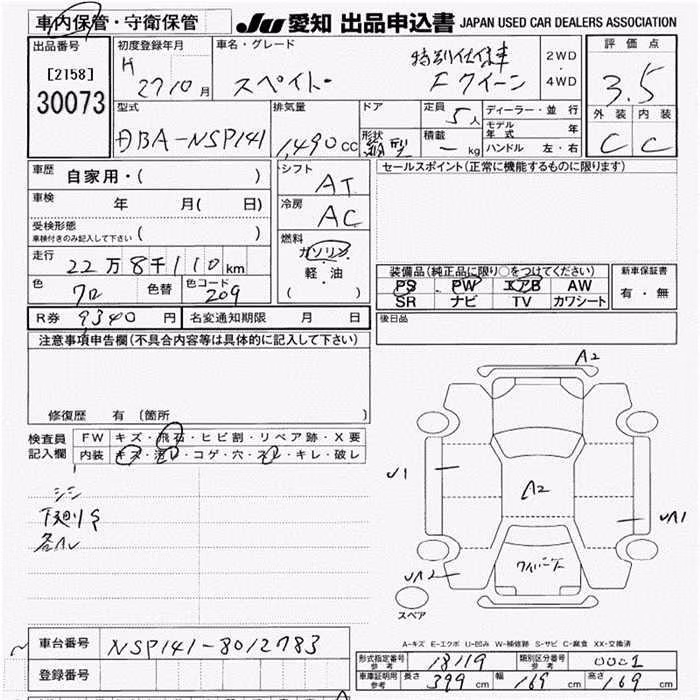 車内保管・守衛保管
JU 愛知 出品申込書 JAPAN USED CAR DEALERS ASSOCIATION
出品番号
[2158]
30073
初度登録年月
H 27 10 月
車名・グレード
特別仕様車
スペイド Fクイーン
2WD
4WD
評価点
3.5
外装 内装
C C
型式
DBA-NSP141
排気量
1,490 cc
ドア
形状
箱型
定員
5人
積載
- kg
ディーラー・並行
モデル年式 年
ハンドル 左・右
車歴 自家用・( )
車検 年 月( 日)
受検形態
車検付きのみ記入して下さい ( )
走行 22万8千110km
色 クロ 色替 色コード 209
R券 9340 円 名変通知期限 月 日
シフト AT
冷房 AC
燃料
ガソリン
軽・油
( )
セールスポイント(正常に機能するものに限ります)
装備品(純正品に限り○をつけてください)
PS PW エアB AW
SR ナビ TV カワシート
新車保証書
有・無
後日品
注意事項申告欄(不具合内容等は具体的に記入して下さい)
修復歴 有 [箇所
検査員記入欄
FW キズ・飛石・ヒビ割・リペア跡・X要
内装 キズ・汚レ・コゲ・穴・スレ・キレ・破レ
シミ
下廻りS
各AU
A2
U1
A2
UA1
UA2
ワイパーナシ
スペア
車台番号 NSP141-8012783
登録番号
A-キズ E-エクボ U-凹み W-補修跡 S-サビ C-腐食 XX-交換済
形式指定番号参考 18119 類別区分番号参考 0001
車庫証明用参考 長さ 399 cm 幅 169 cm 高さ 169 cm